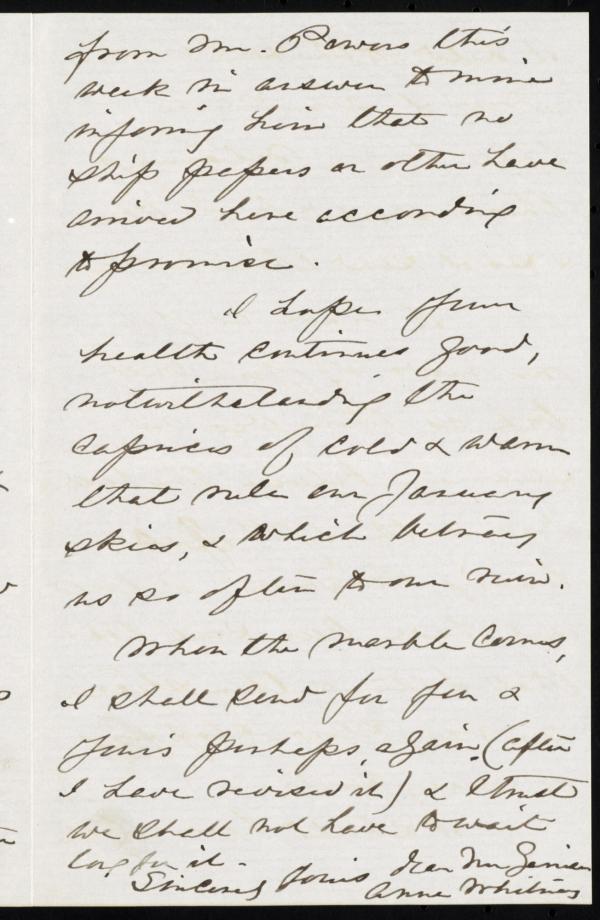 from Mr. Powers this
week in answer to mine
informing him that no
ship papers or other have
arrived here according
to promise.
I hope your
health continues good,
notwithstanding the
caprices of cold & warm
that rule our January
skies, & which betray
us so often to our ruin.
When the marble comes,
I shall send for you &
yours perhaps, again, (after
I have revised it) & I trust
we shall not have to wait
long for it.
Sincerely yours dear Mr
Anne Whitney